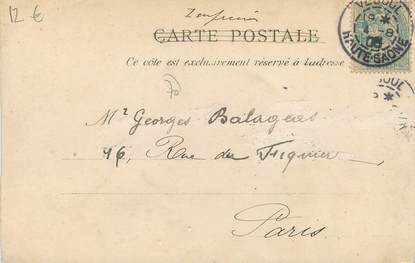 12 €
Imprimé
CARTE POSTALE
Ce côté est exclusivement réservé à l'adresse
VESOUL
HAUTE-SAONE
Mr Georges Balagées
46, Rue du Figuier
Paris